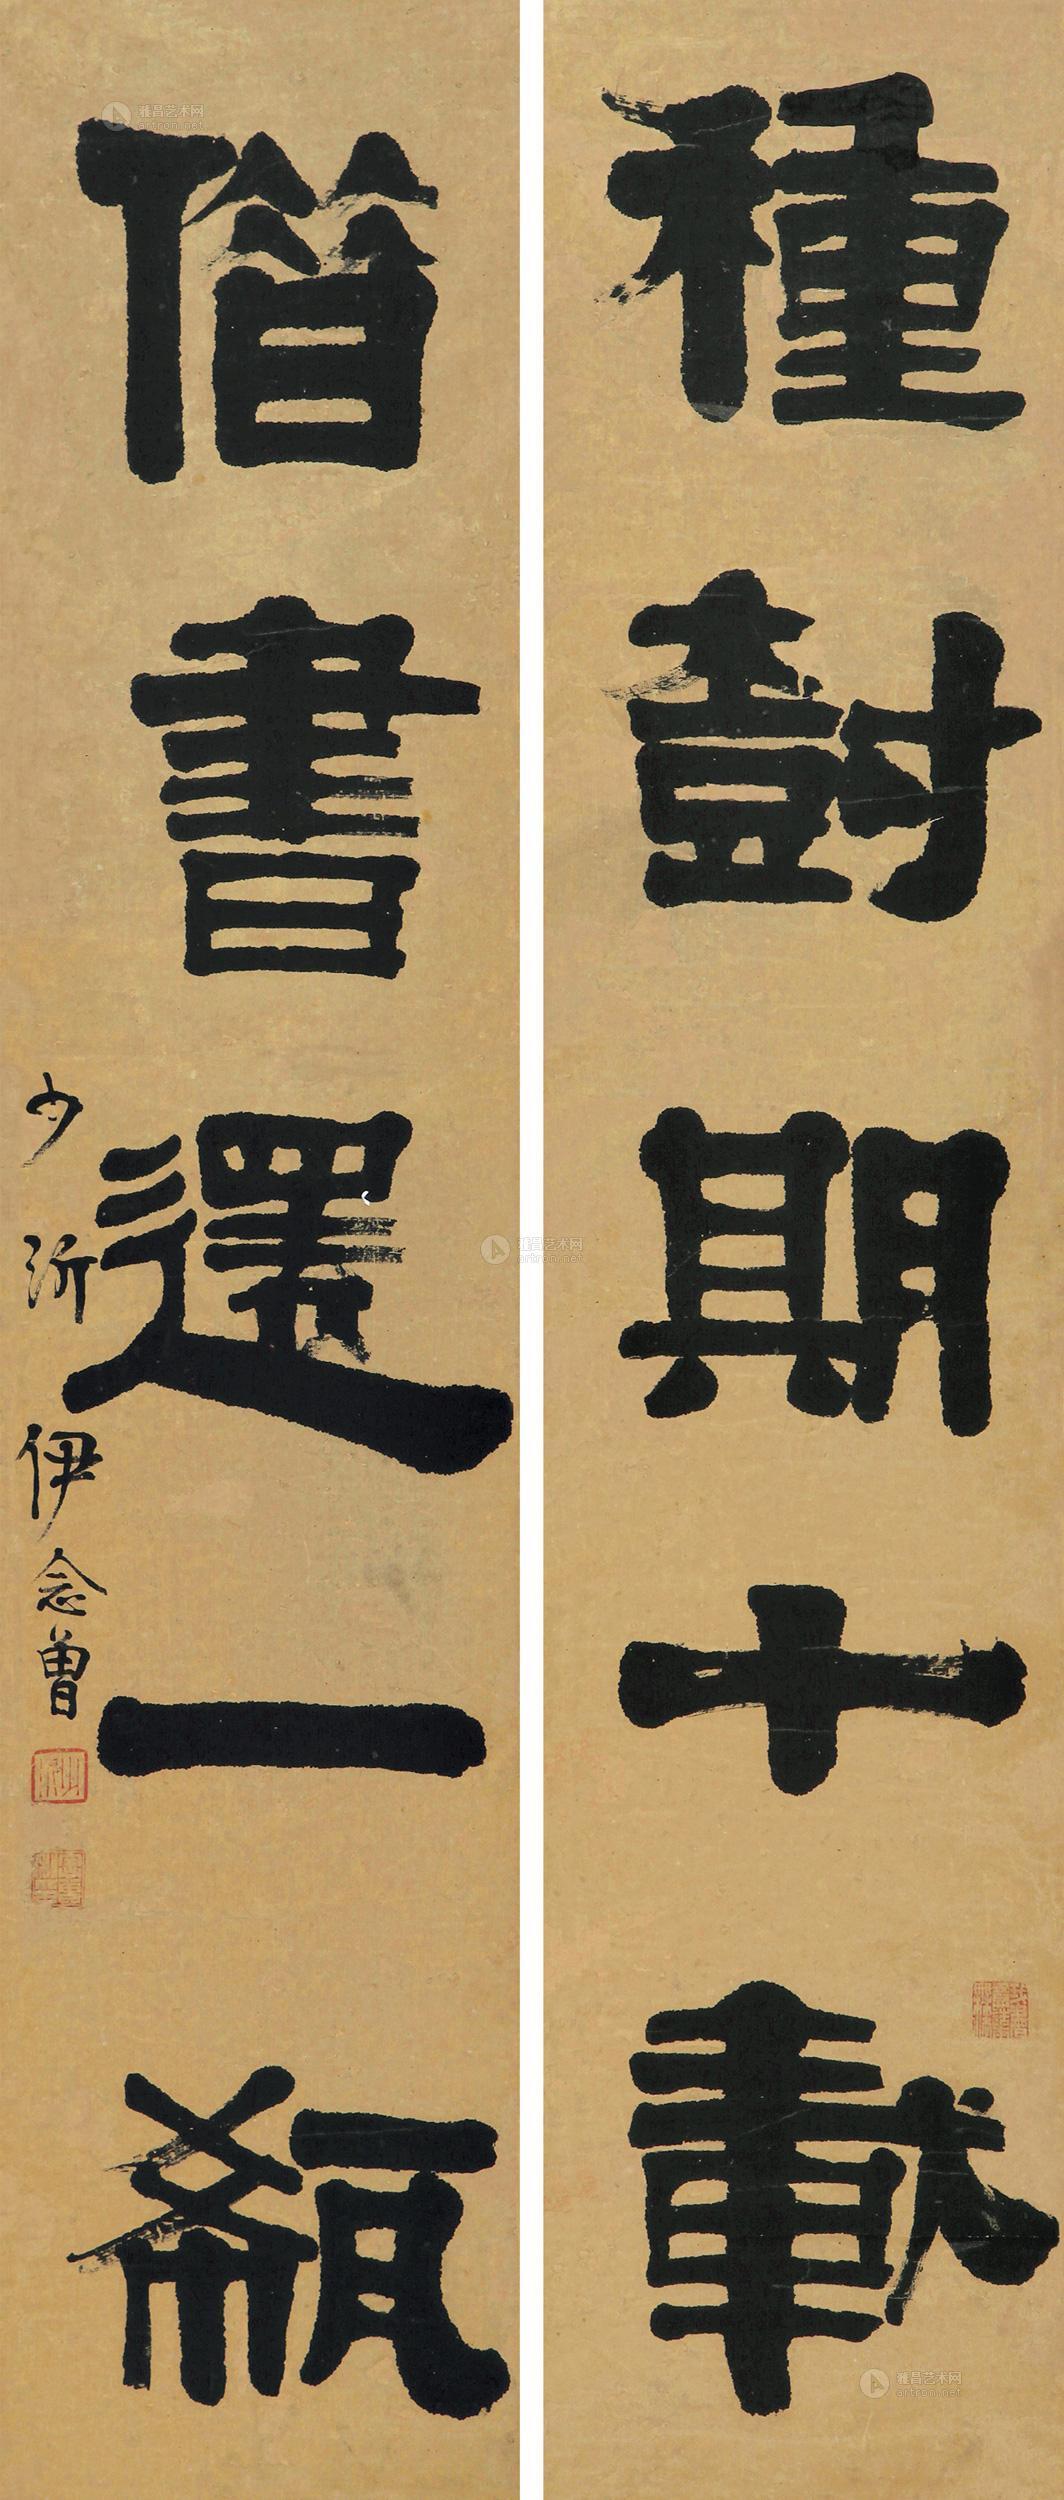 種尌期十載
借書還一瓻
少沂伊念曾
雅昌艺术网
artron.net
雅昌艺术网
artron.net
雅昌艺术网
artron.net